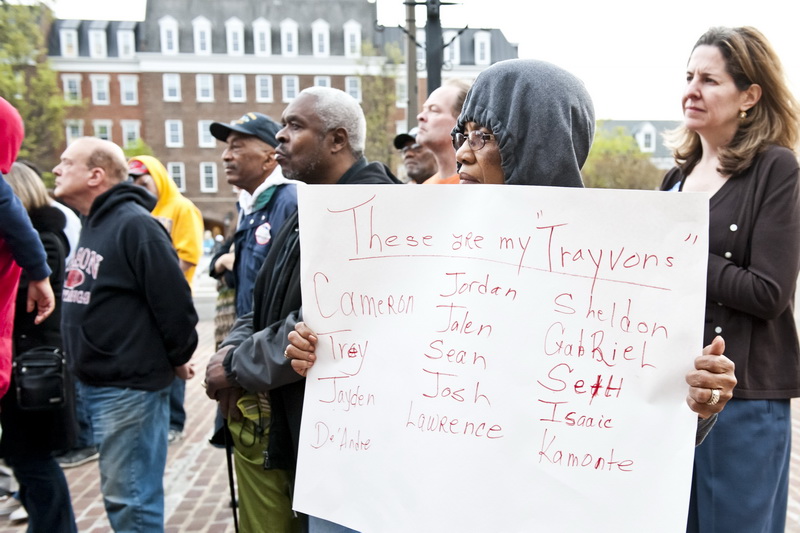 These are my "Trayvons"
Cameron
Trey
Jayden
De'Andre
Jordan
Jalen
Sean
Josh
Lawrence
Sheldon
GabRieL
SetH
Isaaic
Kamonte